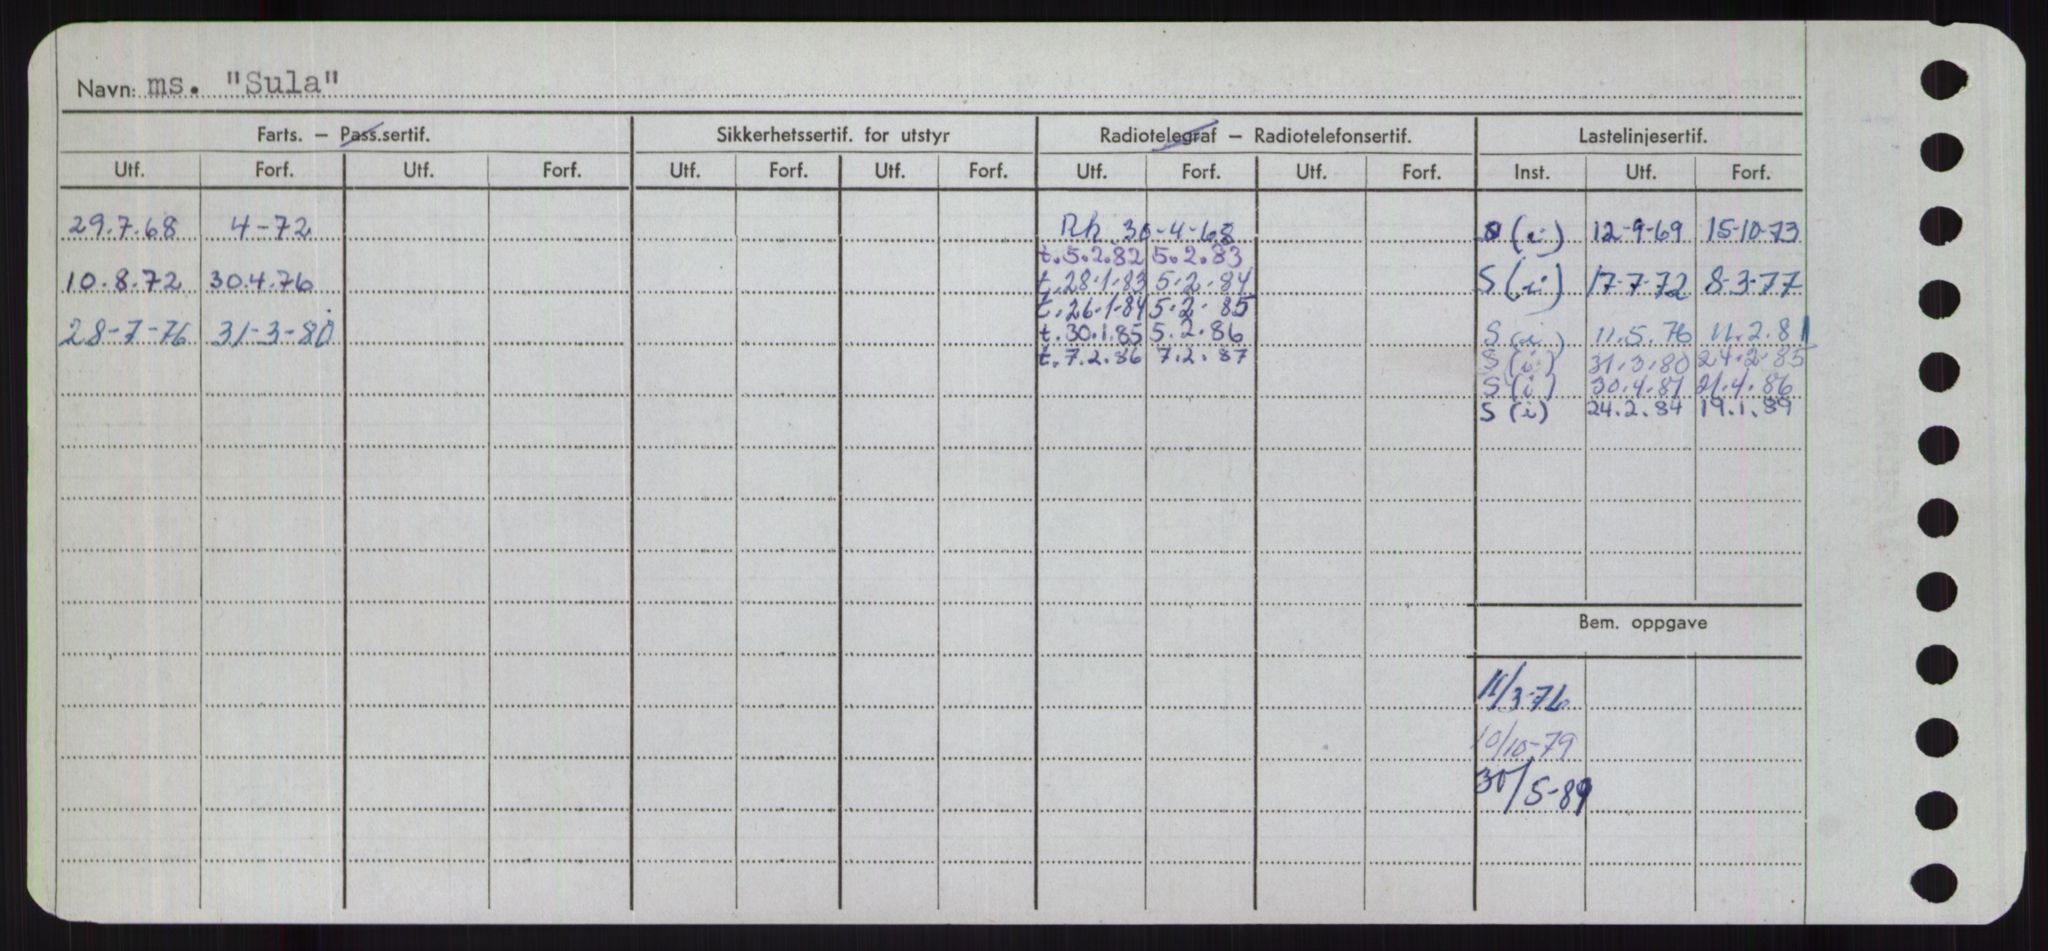 Navn: ms. "Sula"
Farts. — Pass.sertif. Sikkerhetssertif. for utstyr Radiotelegraf — Radiotelefonsertif. Lastelinjesertif.
Utf. Forf. Utf. Forf. Utf. Forf. Utf. Forf. Utf. Forf. Utf. Forf. Inst. Utf. Forf.
29.7.68 4-72 Rk 30-4-68 S (i) 12-9-69 15-10-73
t. 5.2.82 5.2.83
10.8.72 30.4.76 t. 28.1.83 5.2.84 S (i) 17-7-72 8-3-77
t. 26.1.84 5.2.85
28-7-76 31-3-80 t. 30.1.85 5.2.86 S (i) 11.5.76 11.2.81
t. 7.2.86 7.2.87 S (i) 31.3.80 24.2.85
S (i) 30.4.81 21.4.86
S (i) 24.2.84 19.1.89
Bem. oppgave
11/3-76
10/10-79
30/5-89